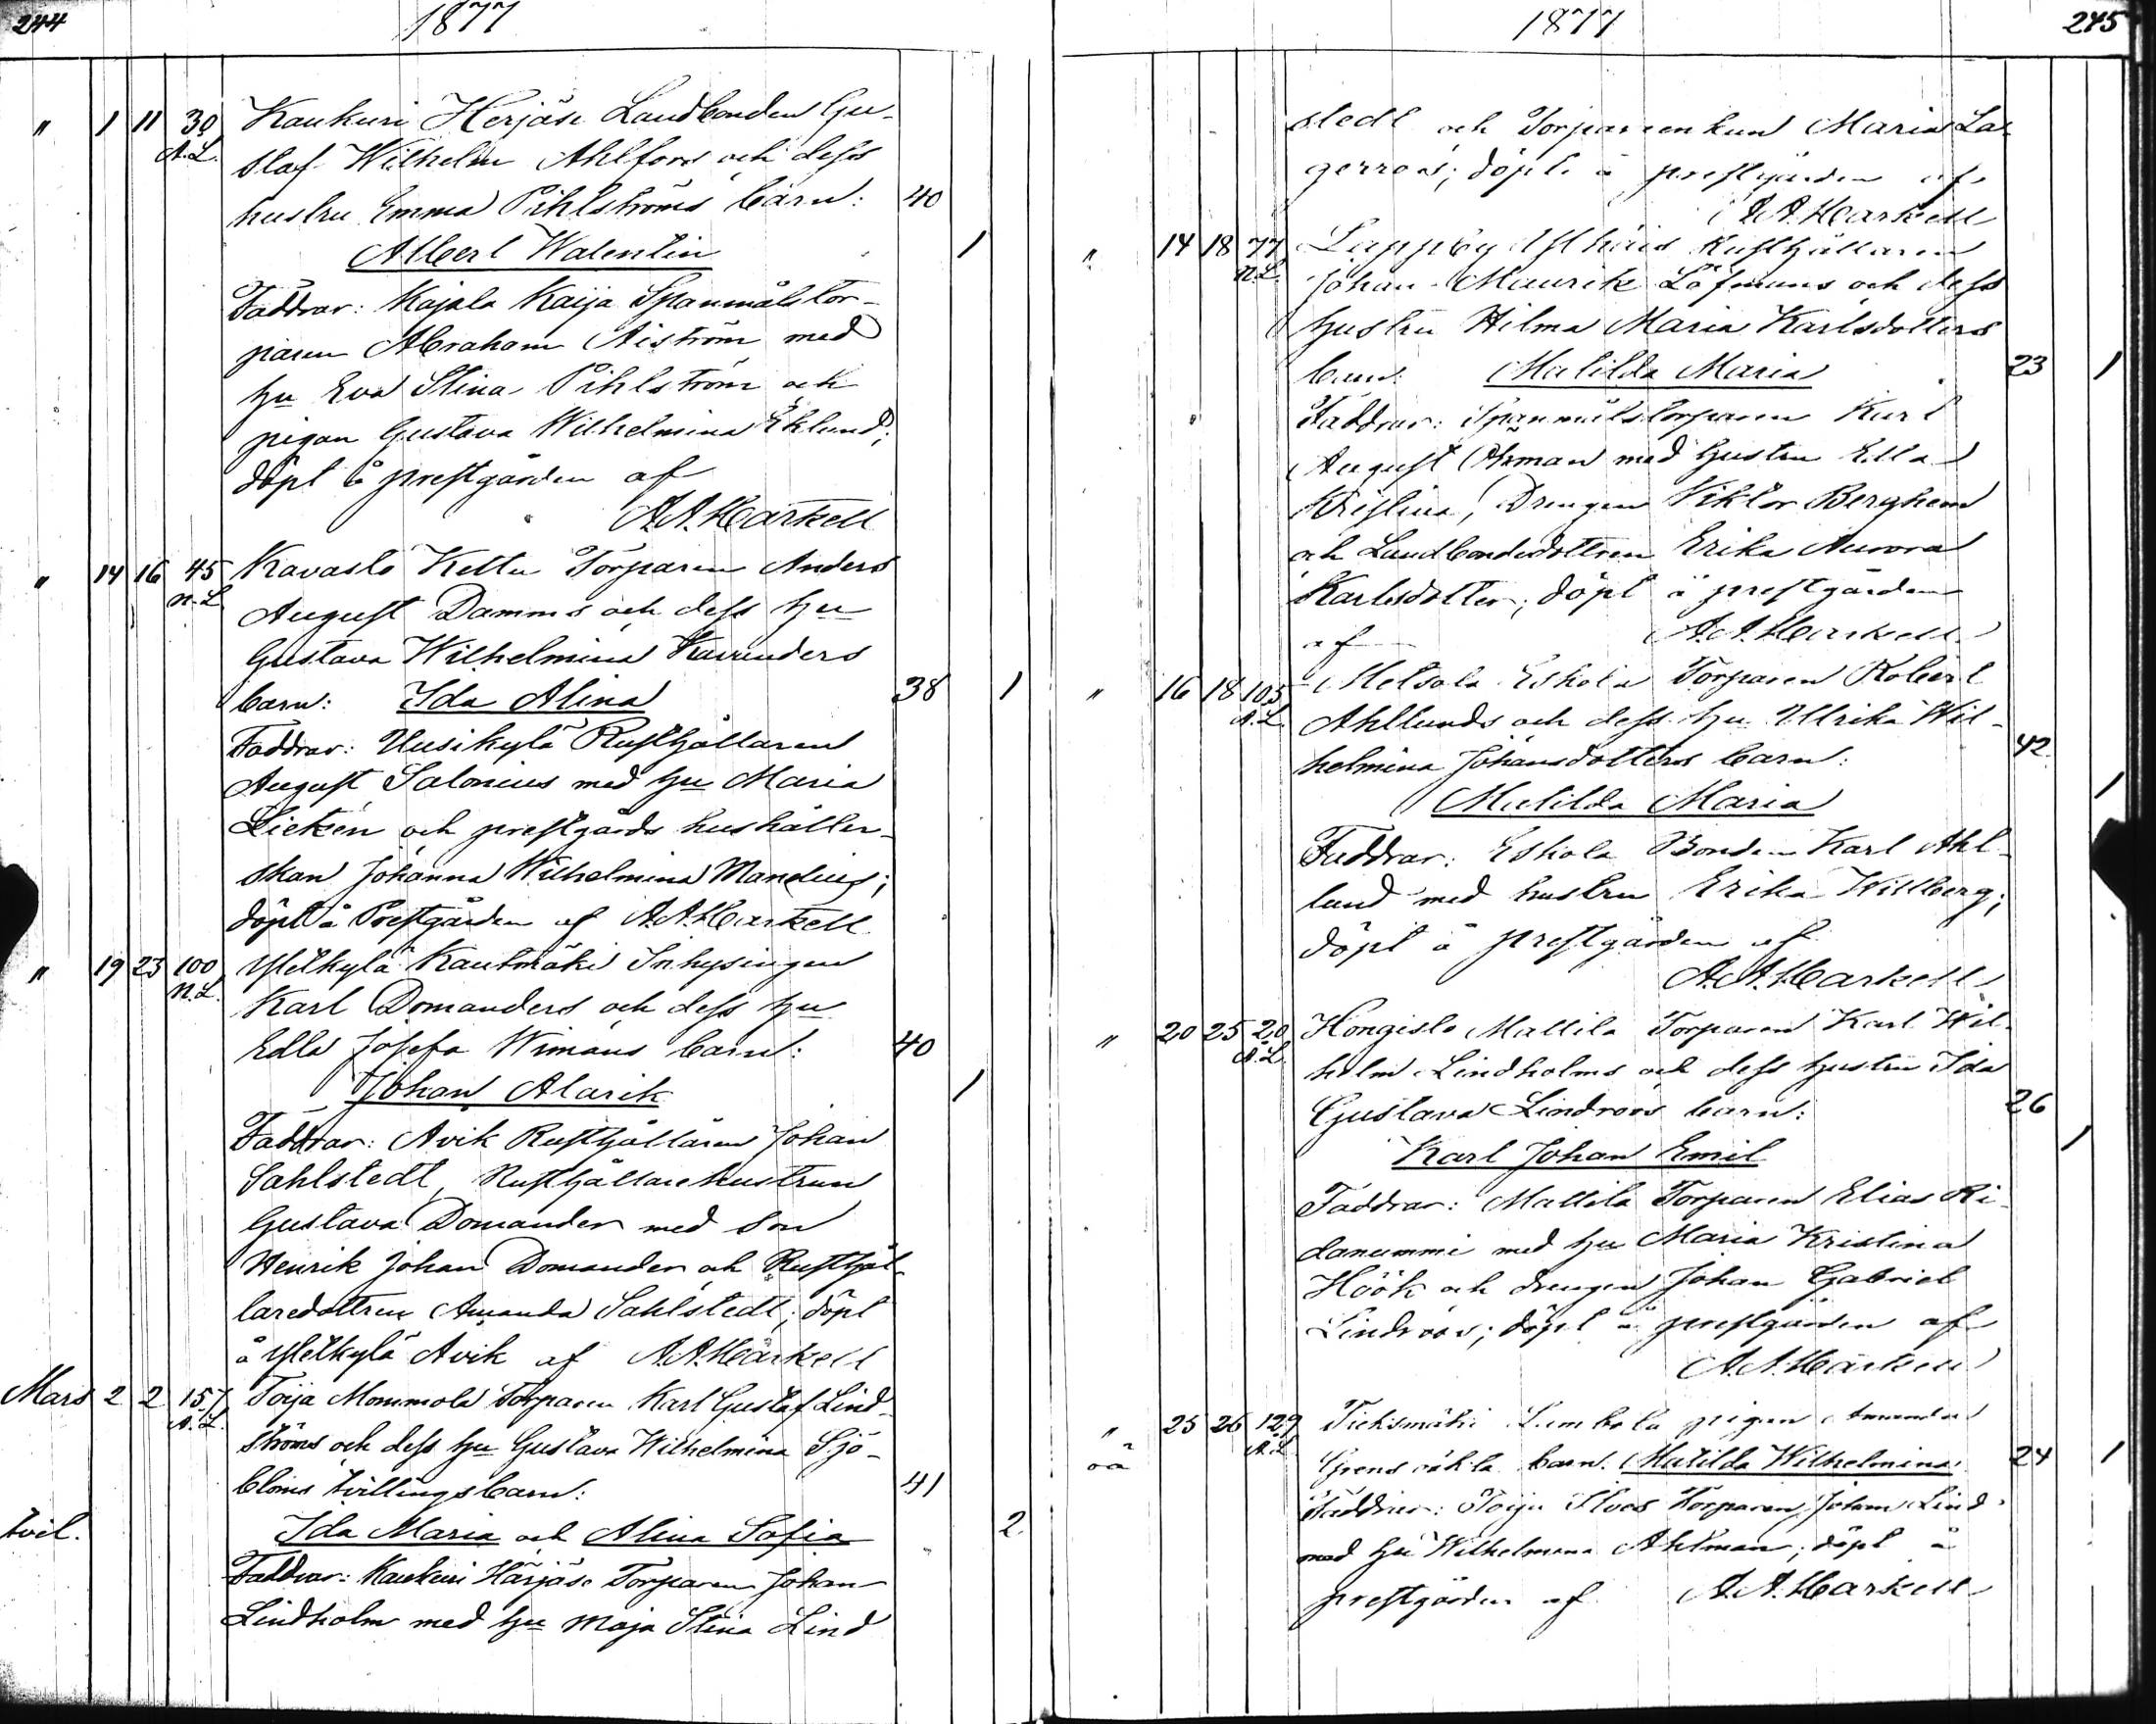 244
1877
" 1 11 30 Kaukuri Herjäse Landbonden Gu-
A.L. staf Wilhelm Ahlfors och dess
hustru Emma Pihlströms barn: 40
Albert Walentin 1
Faddrar: Kajala Kaija Spanmålstor-
paren Abraham Aiström med
hu Eva Stina Pihlström och
pigan Gustava Wilhelmina Eklund;
döpt å prestgården af
A.A. Markell
" 14 16 45 Kavasto Kettu Torparen Anders
N.L. August Damms och dess hu
Gustava Wilhelmina Kavanders
barn: Ida Alina 38 1
Faddrar: Uusikylä Rusthållaren
August Salonius med hu Maria
Lietzén och prestgårds hushåller-
skan Johanna Wilhelmina Mandelius;
döpt å Prestgården af A.A. Markell
" 19 23 100 Yltkylä Kautmäki Inhysingen
N.L. Karl Domanders och dess hu
Edla Josefa Wimans barn: 40
Johan Alarik 1
Faddrar: Avik Rusthållaren Johan
Sahlstedt, Rusthållarehustrun
Gustava Domander med son
Henrik Johan Domander och Rusthål-
laredottren Amanda Sahlstedt; döpt
å Yltkylä Avik af A.A. Markell
Mars 2 2 157 Toija Mommola Torparen Karl Gustaf Lind-
A.L. ströms och dess hu Gustava Wilhelmina Sjö-
bloms tvillingsbarn: 41
tvil. Ida Maria och Alina Sofia 2
Faddrar: Kaukuri Härjäse Torparen Johan
Lindholm med hu Maja Stina Lind
1877
245
stedt och Torpareenkan Maria La-
gerroos; döpt å prestgården af
A.A. Markell
" 14 18 77 Lappby Rusthållaren
N.L. Johan Maurik Löfmans och dess
hustru Hilma Maria Karlsdotters
barn: Matilda Maria 23 1
Faddrar: Spanmålstorparen Karl
August Öhman med hustru Edla
Kristina, Drengen Viktor Berghem
och Landbondedottren Erika Aurora
Karlsdotter; döpt å prestgården
af A.A. Markell
" 16 18 105 Metsola Eskola Torparen Robert
A.L. Ahllunds och dess hu Ulrika Wil-
helmina Johansdotters barn: 42
Matilda Maria 1
Faddrar: Eskola Bonden Karl Ahl-
lund med hustru Erika Willberg;
döpt å prestgården af
A.A. Markell
" 20 25 20 Hongisto Mattila Torparen Karl Wil-
A.L. helm Lindholms och dess hustru Ida
Gustava Lindroos barn: 26
Karl Johan Emil 1
Faddrar: Mattila Torparen Elias Ri-
danummi med hu Maria Kristina
Höök och drengen Johan Gabriel
Lindroos; döpt å prestgården af
A.A. Markell
" 25 26 129 Tieksmäki Lembola pigan Amanda
oä A.L. Grens oäkta barn: Matilda Wilhelmina 24 1
Faddrar: Toija Torparen Johan Lind
med hu Wilhelmina Ahlman; döpt å
prestgården af A.A. Markell